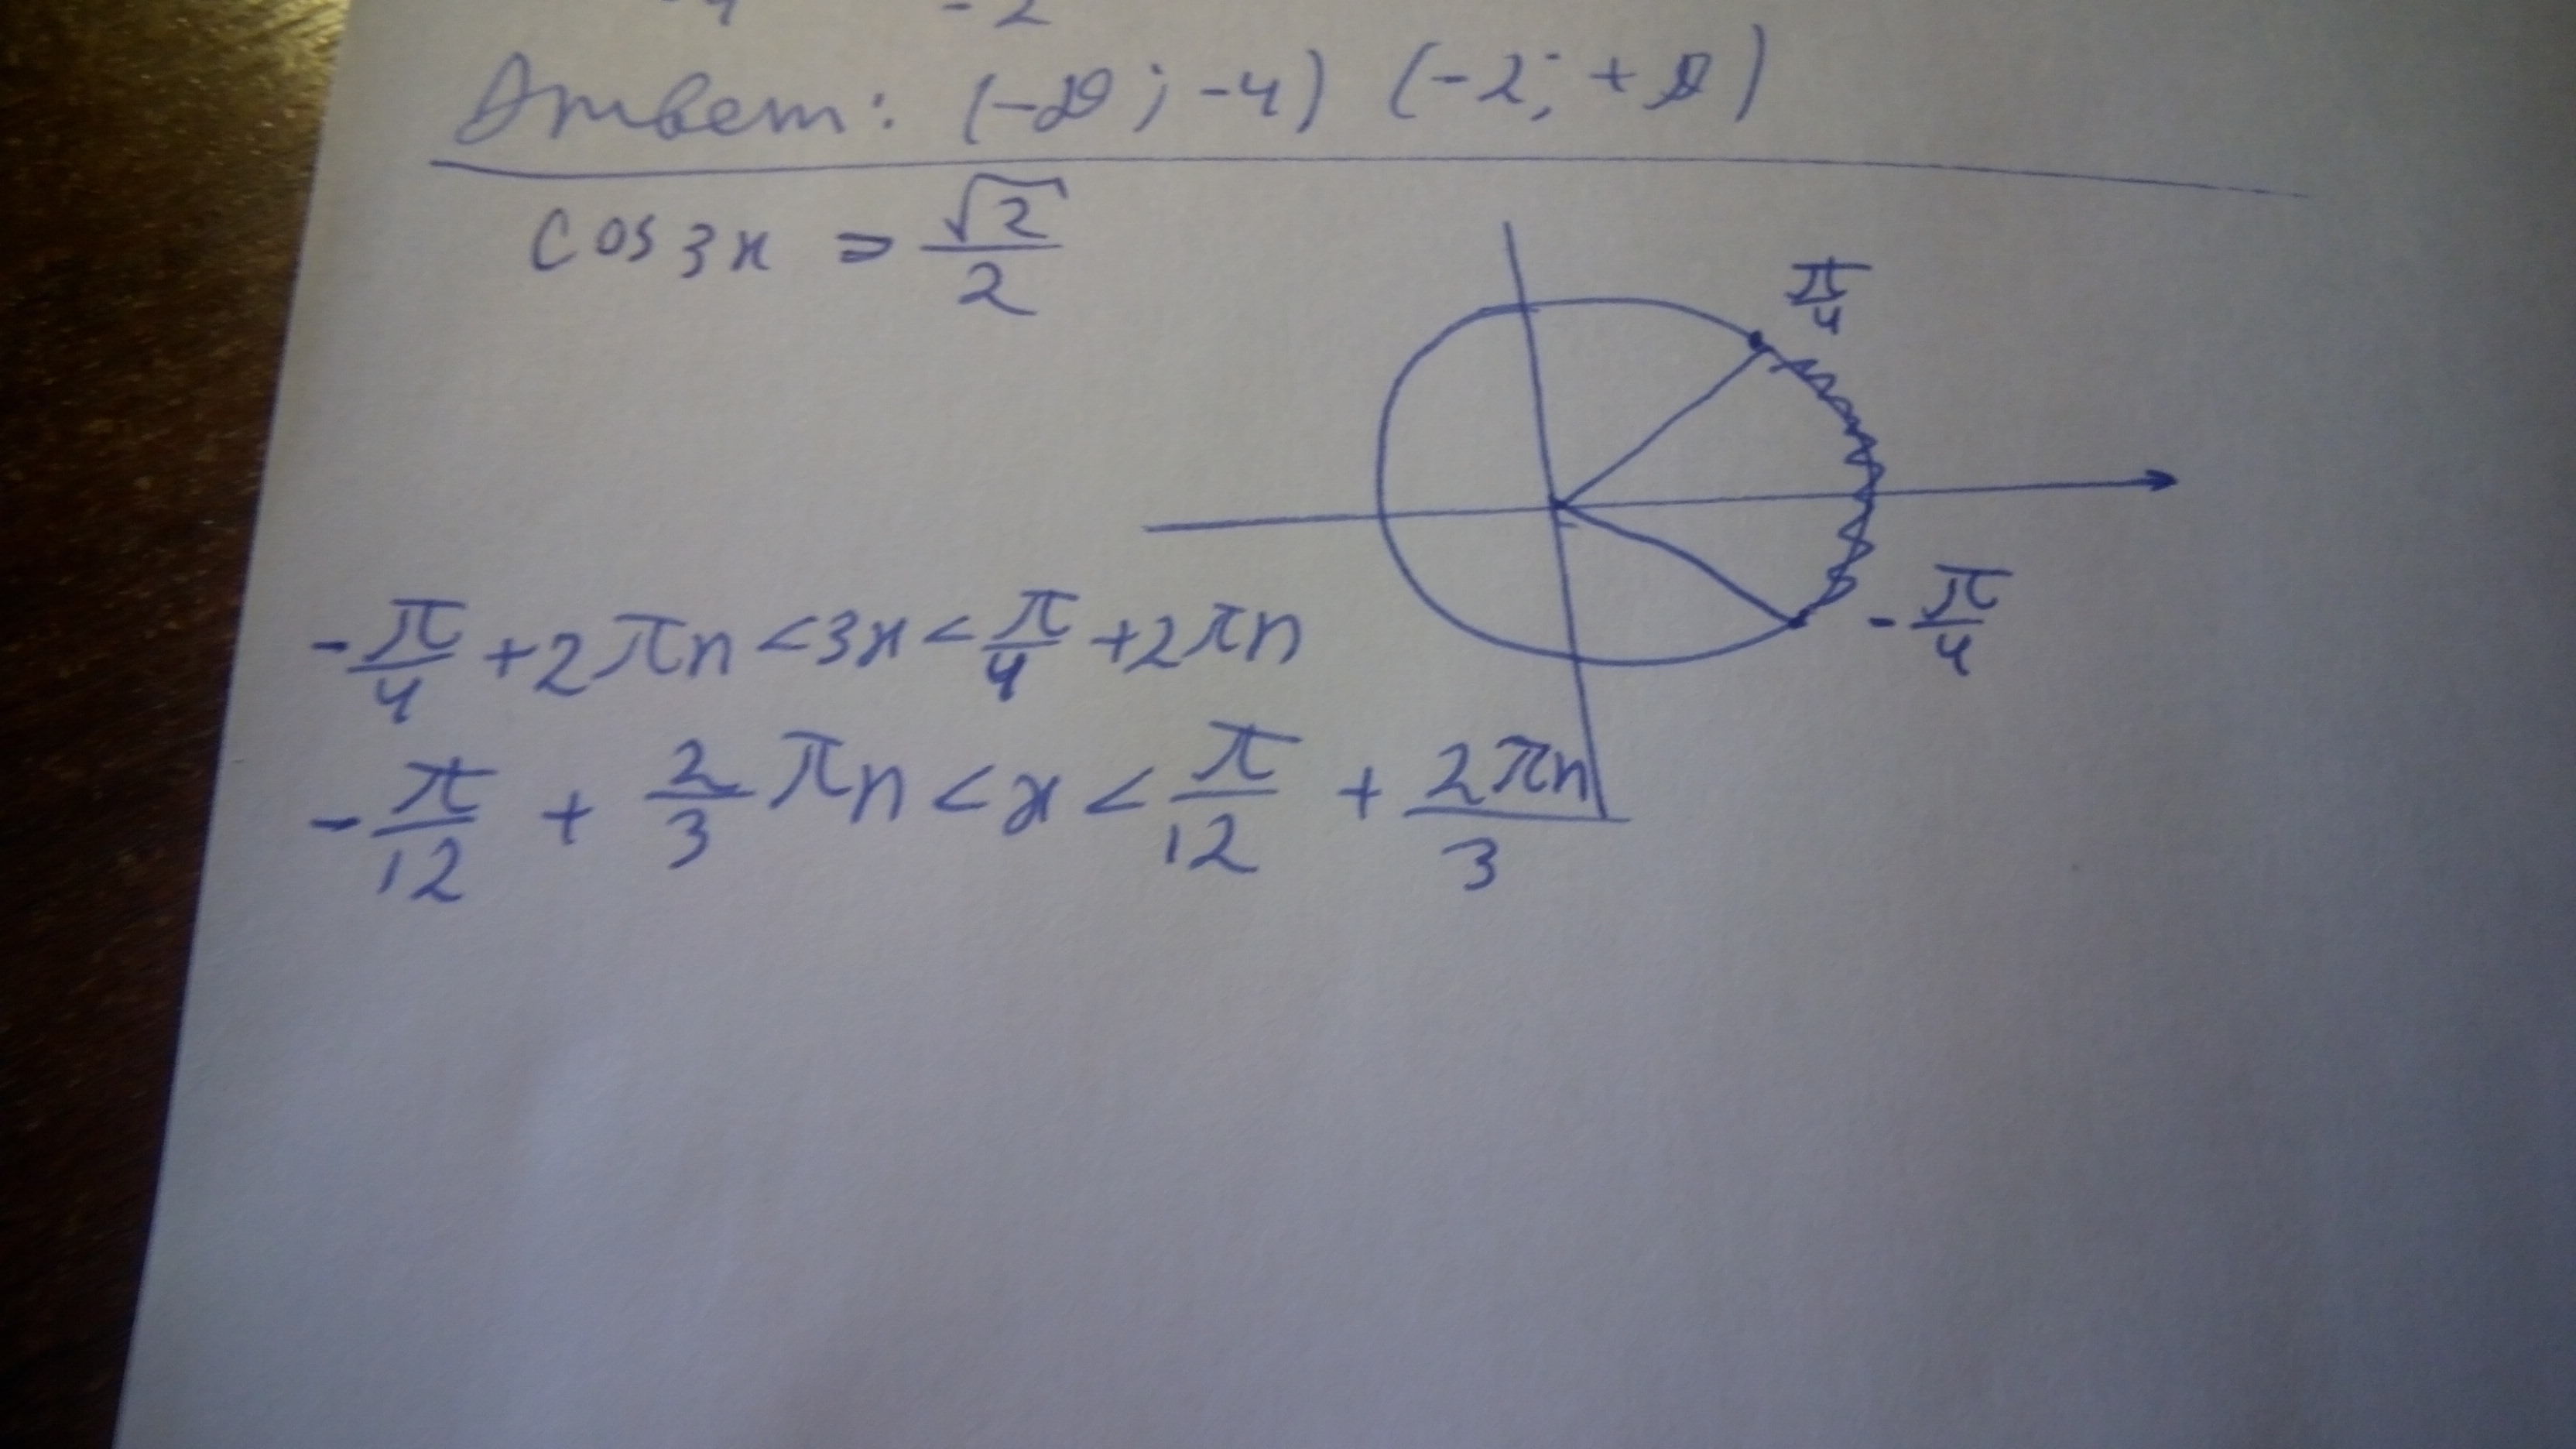 -2
Ответ: (-∞; -4) (-2; +∞)
cos 3x = √2/2
π/4
-π/4
-π/4 + 2πn < 3x < π/4 + 2πn
-π/12 + 2/3 πn < x < π/12 + 2πn/3